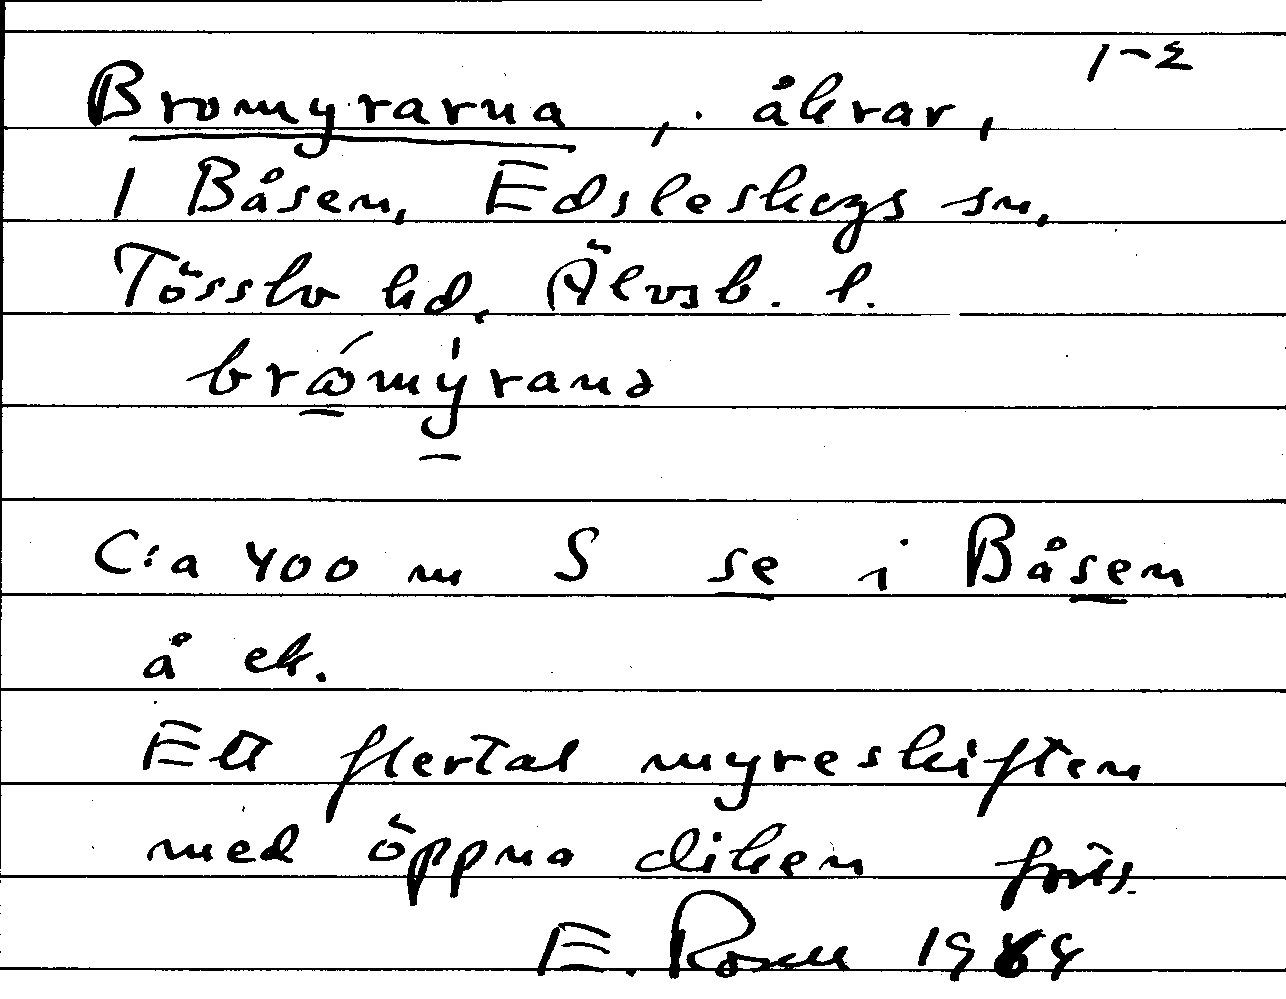 1-2
Bromyrarna, åkrar,
1 Båsen, Edsleskogs sn,
Tössbo hd, Älvsb. l.
brώ̲my̲̍ranə
C:a 400 m S se i Båsen
å ek.
Ett flertal myreskiften
med öppna diken forts.
E. Rosell 1969